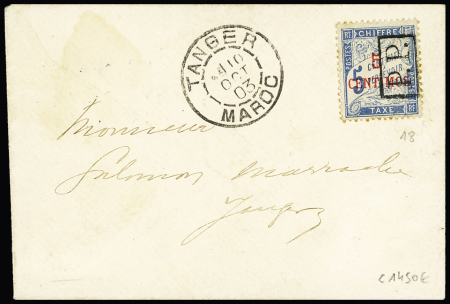 TANGER
10
OCT
03
MAROC
POSTES CHIFFRE RF
5 5
CENTIMOS
P.P.
TAXE
18
Monsieur
Salomon
Tanger
C1450E